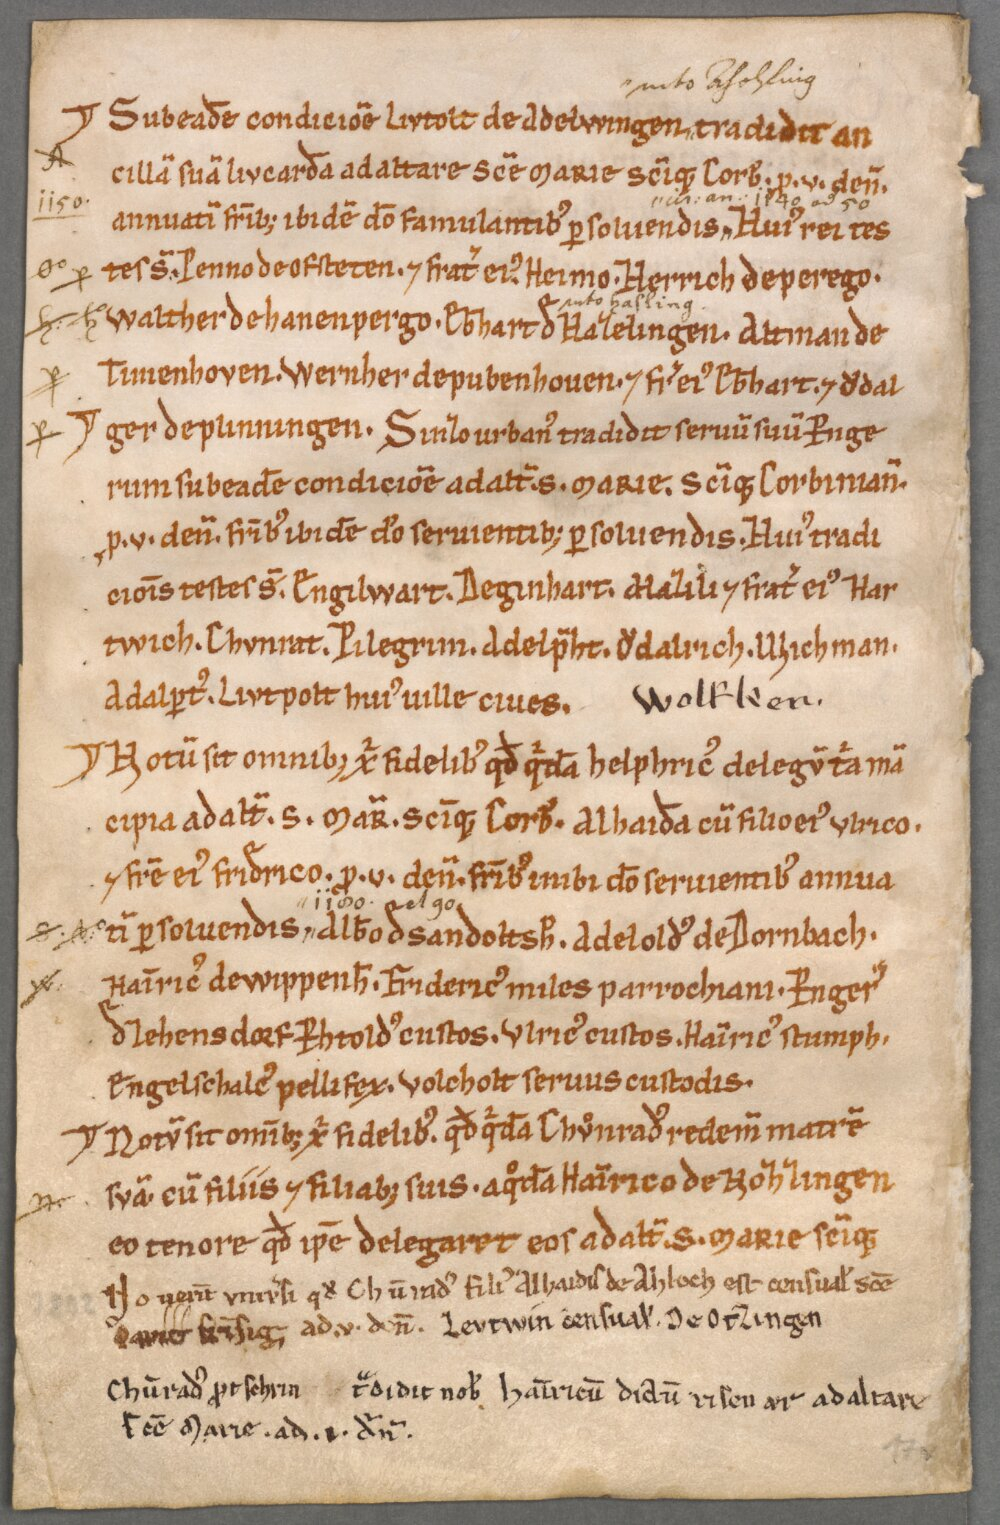 Sub eadē condiciōe Livtolt de Adelwingen tradidit an
cillā suā livcardā ad altare scē MARIE scīq; Corb̄. p. v. deñ.
1150.
annuatī frīb; ibidē dō famulantib' psoluendis. Hui' rei tes
tes s̄. Penno de ofsteten. ⁊ frat' ei'. Heimo. Herrich de perego.
Walther de hanenpergo. Eb̄hart d̄ Hæ̈lelingen. Altman de
Timenhoven. Wernher de pubenhouen. ⁊ fr' ei' Eb̄hart. ⁊ Vͦdal
ger de plinningen. Simͥlo urban' tradidit seruū suū Enge
rum sub eadē condiciōe ad alt̄. S. MARIE. Scīq; Corbiniañ.
p. v. deñ. frīb' ibidē dō seruientib; psoluendis. Hui' tradi
cioīs testes s̄. Engilwart. Deginhart. Hälili ⁊ frat' ei' Har
twich. Chvnrat. Pilegrim. Adelp̄ht. Vͦdalrich. Wichman.
Adalpt'. Livtpolt hui' uille ciues. Wolfker.
Notū sit omnib; xp̄ fidelib' qđ qͥdā helphric' delegṽ t̃a mā
cipia ad alt̄. S. MAR̄. Scīq; Corb̄. Alhaidā cū filio ei' vlrico.
⁊ frē ei' fridrico. p. v. deñ. frīb' inibi dō seruientib' annua
1180 vel 90
tī psoluendis. Alb̄o d̄ sandoltsh̄. Adelold' de Dornbach.
Haīric' de wippenh̄. Frideric' miles parrochiani. Enger'
d̄ Lehensdorf Ehtold' custos. Vlric' custos. Haīric' stumph.
Engelschalc' pellifex. Volcholt seruus custodis.
Notṽ sit omīb; xp̄ fidelib'. qđ qͥdā Chvͦnrad' redem̄ matrē
svā cū filiis ⁊ filiab; suis. a qͦdā Haīrico de Röhͥlingen
eo tenore qđ ip̄e delegaret eos ad alt̄. S. MARIE scīq;
Nouerīt vniv̄si qđ Chūrad' fili' Alhaidis de Ahloch est censual' scē
ad. v. deñ. Levtwin censual'. De Otͥlingen
Chūrad' p̄tschrin t̄didit nob' haīricū dictū ad altare
scē Marie. ad. v. dn̄.